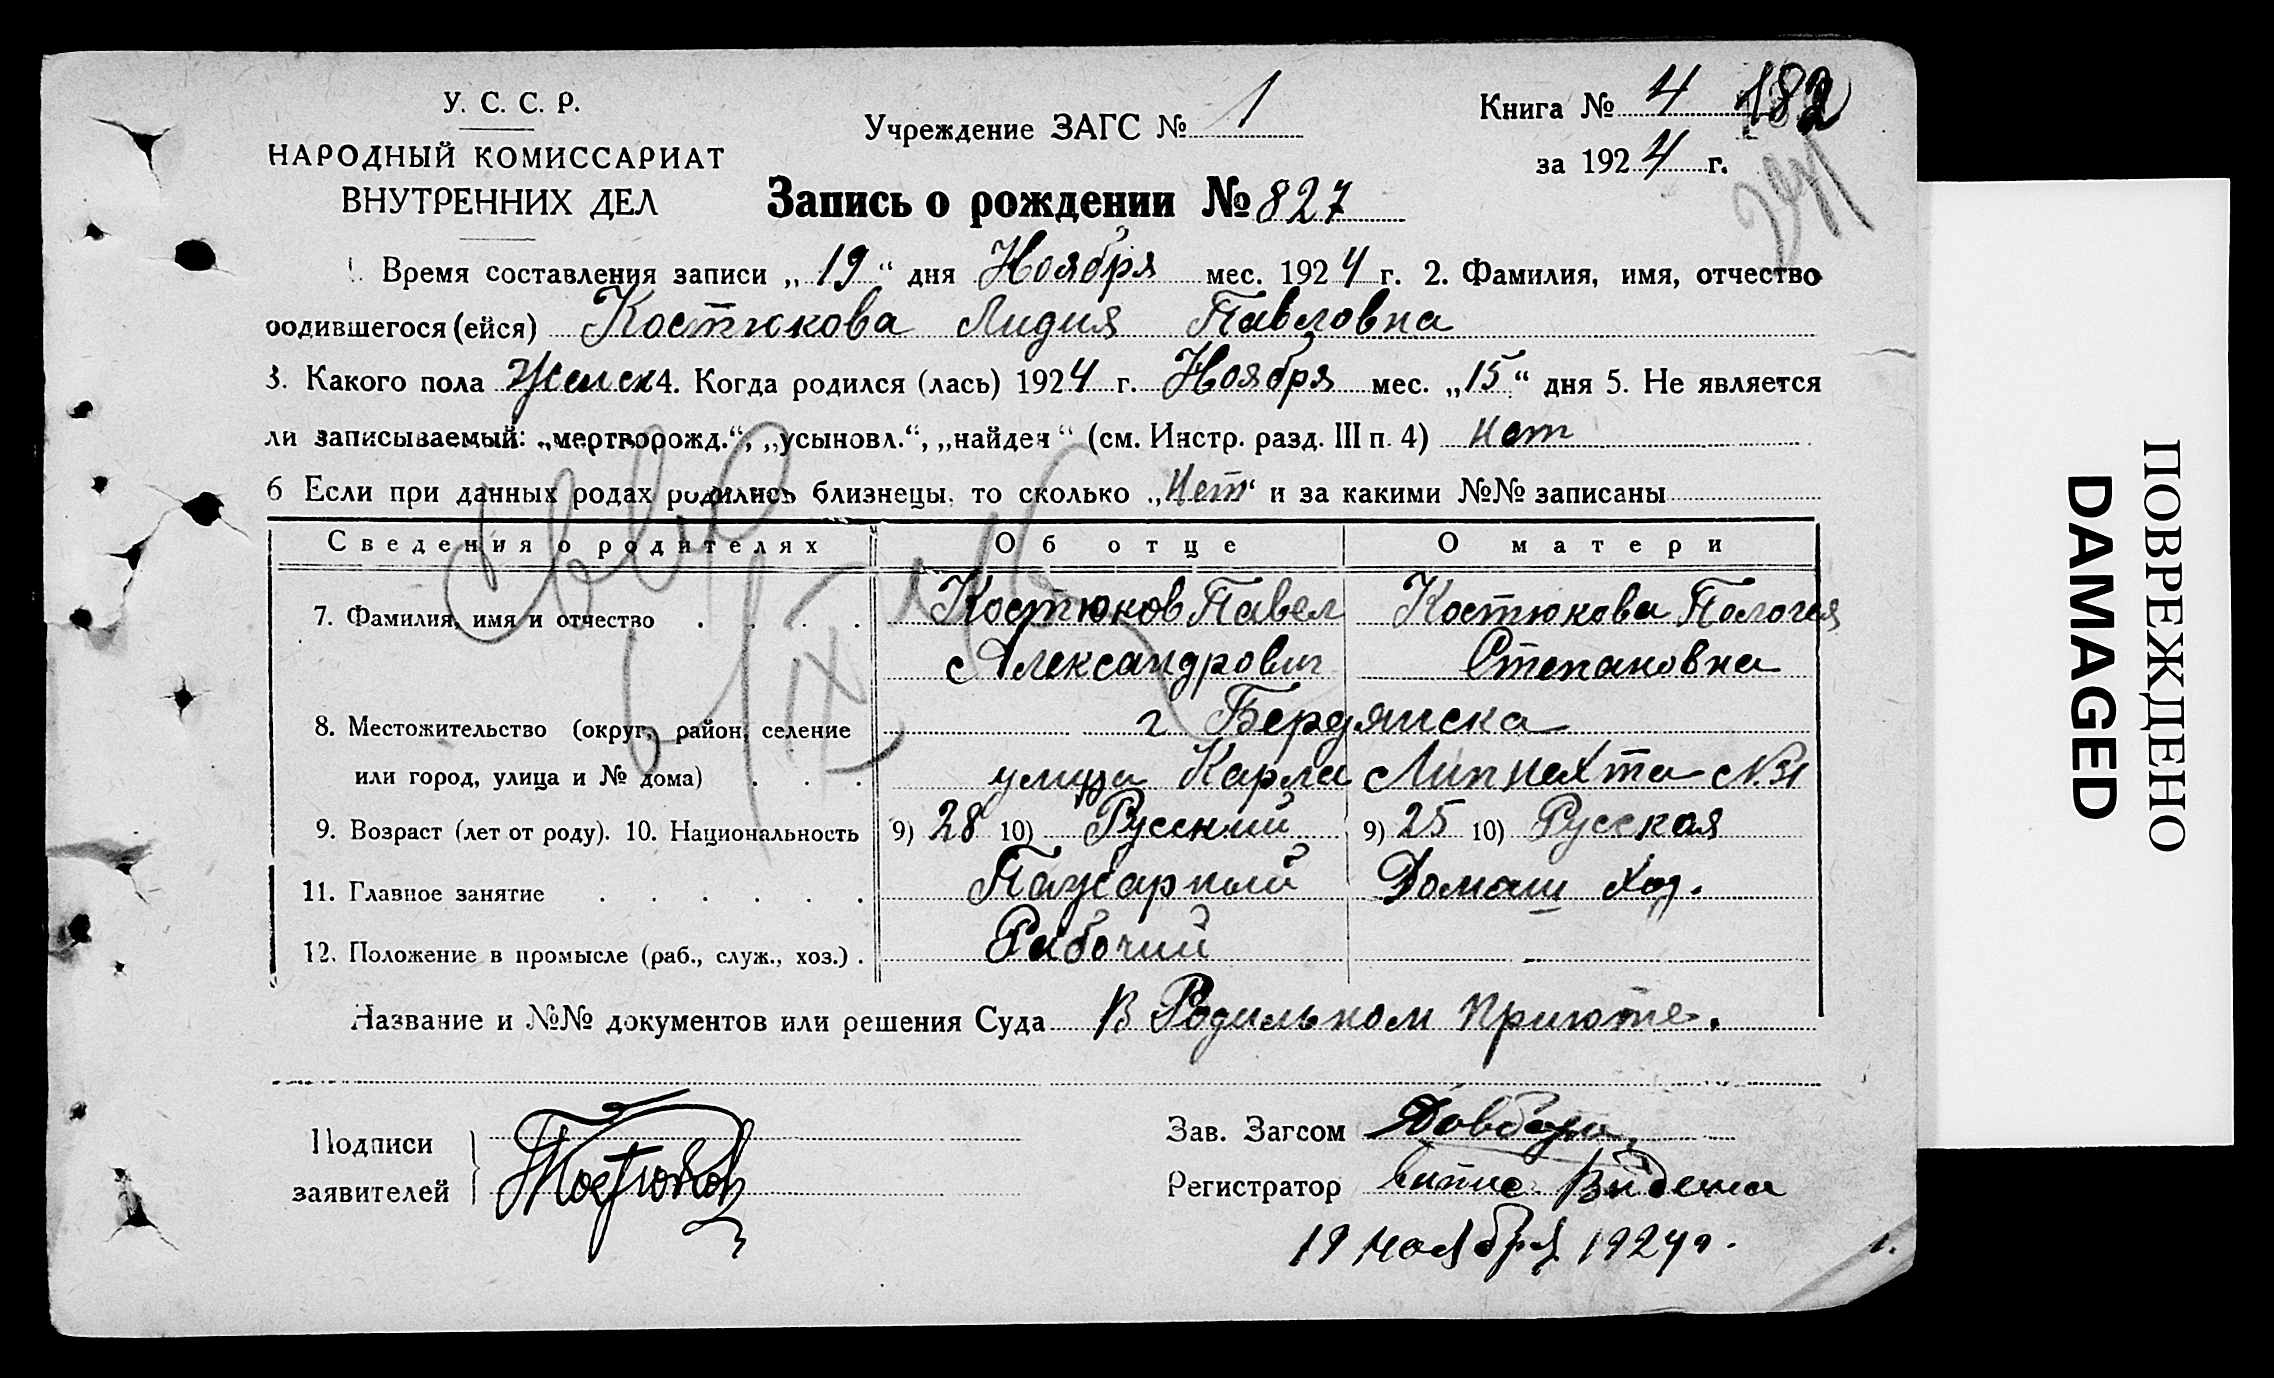 У. С. С. Р.
НАРОДНЫЙ КОМИССАРИАТ
ВНУТРЕННИХ ДЕЛ
Учреждение ЗАГС № 1
Книга № 4 182
за 1924 г.
Запись о рождении № 827
1. Время составления записи „19“ дня Ноября мес. 1924 г. 2. Фамилия, имя, отчество
родившегося (ейся) Костюкова Лидия Павловна
3. Какого пола Женск 4. Когда родился (лась) 1924 г. Ноября мес. „15“ дня 5. Не является
ли записываемый: „мертворожд.“, „усыновл.“, „найден“ (см. Инстр. разд. III п. 4) нет
6 Если при данных родах родились близнецы, то сколько „Нет“ и за какими №№ записаны
Сведения о родителях Об отце О матери
7. Фамилия, имя и отчество . . . . Костюков Павел Костюкова Пологея
Александрович Степановна
8. Местожительство (округ, район, селение г Бердянска
или город, улица и № дома) . . . улица Карла Липнехта №31
9. Возраст (лет от роду). 10. Национальность 9) 28 10) Русский 9) 25 10) Русская
11. Главное занятие . . . . . . Домаш хоз.
12. Положение в промысле (раб., служ., хоз.) . Рабочий -
Название и №№ документов или решения Суда В Родильном приюте.
Подписи
заявителей Костюков
Зав. Загсом
Регистратор
19 ноября 1924 г.
ПОВРЕЖДЕНО
DAMAGED